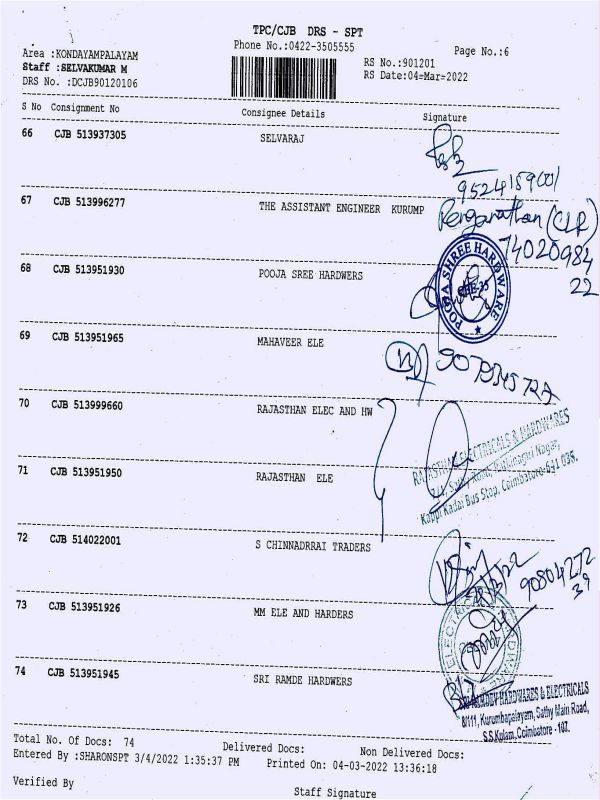 TPC/CJB DRS - SPT
Phone No.:0422-3505555
Page No.:6
Area :KONDAYAMPALAYAM
Staff :SELVAKUMAR M
DRS No. :DCJB90120106
RS No.:901201
RS Date:04=Mar=2022
S No Consignment No Consignee Details Signature
66 CJB 513937305 SELVARAJ
9524159001
67 CJB 513996277 THE ASSISTANT ENGINEER KURUMP
Renganathan (CLR)
74020984
22
68 CJB 513951930 POOJA SREE HARDWERS
POOJA SHREE HARDWARE
69 CJB 513951965 MAHAVEER ELE
70 CJB 513999660 RAJASTHAN ELEC AND HW
RAJASTHAN ELECTRICALS & HARDWARES
Kappi Kadai Bus Stop, Coimbatore-641 035.
71 CJB 513951950 RAJASTHAN ELE
72 CJB 514022001 S CHINNADRRAI TRADERS
90804272
39
73 CJB 513951926 MM ELE AND HARDERS
74 CJB 513951945 SRI RAMDE HARDWERS
HARDWARES & ELECTRICALS
8/111, Kurumbapalayam, Sathy Main Road,
S.S.Kulam, Coimbatore - 107.
Total No. Of Docs: 74 Delivered Docs: Non Delivered Docs:
Entered By :SHARONSPT 3/4/2022 1:35:37 PM Printed On: 04-03-2022 13:36:18
Verified By
Staff Signature